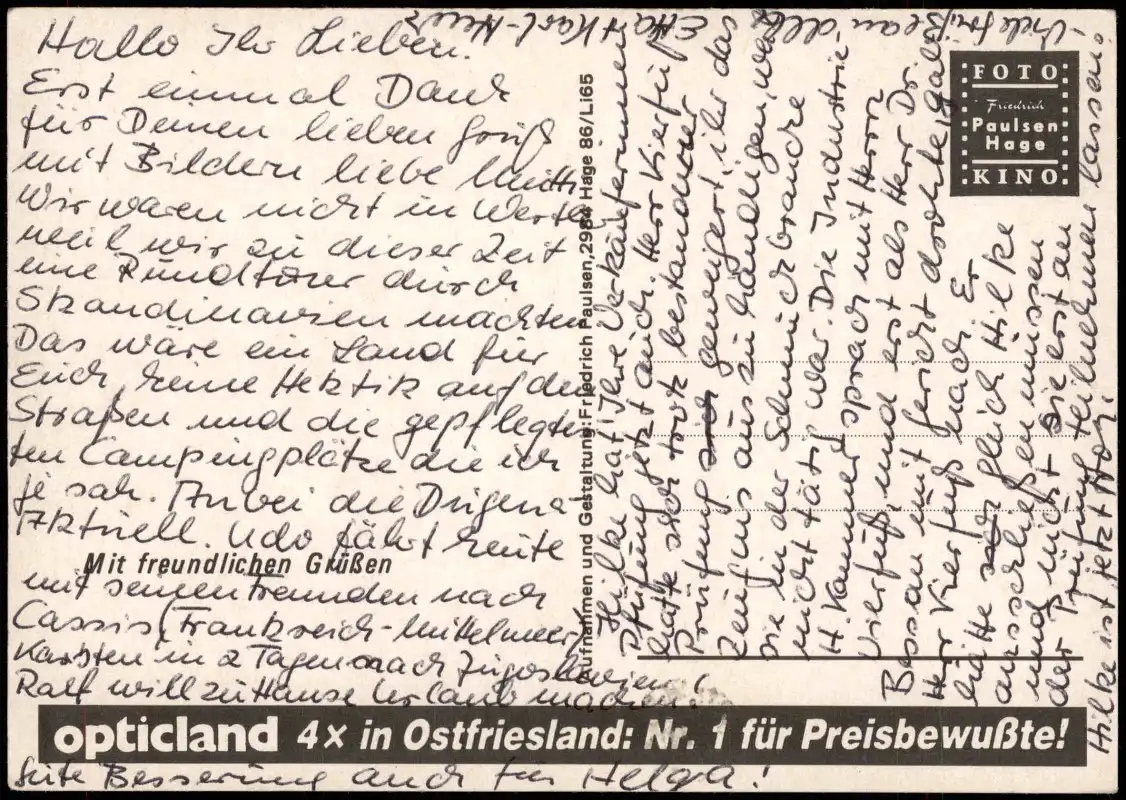 Hallo Ihr Lieben.
Erst einmal Dank
für Deinen lieben Gruß
mit Bildern liebe Mutti
Wir waren nicht in
weil wir zu dieser Zeit
eine Rundtour durch
Skandinavien machten
Das wäre ein Land für
Euch, keine Hektik auf den
Straßen und die gepflegte
ten Campingplätze die ich
je sah. Anbei die
Aktuell. Udo fährt heute
Mit freundlichen Grüßen
mit seinen Freunden nach
Cassis, (Frankreich-Mittelmeer)
Karsten in 2 Tagen nach Jugoslawien!
Ralf will zu Hause Urlaub machen.
opticland 4x in Ostfriesland: Nr. 1 für Preisbewußte!
Gute Besserung auch für Helga!
Aufnahmen und Gestaltung: Friedrich Paulsen, 2984 Hage 86/Li65
FOTO
Friedrich
Paulsen
Hage
KINO
Hilke hat Ihre Verkäuferinnen
Prüfung jetzt auch. Herr Kierfuß
hatte sich trotz bestandener
Prüfung sich geweigert, ihr das
Zeugnis auszuhändigen, weil
sie in der Schmuckbranche
nicht tätig war. Die Industrie
H. Kammer sprach mit Herrn
Kierfuß, und erst als Herr Dr.
mit Gericht drohte, gab
Herr Kierfuß nach. Er
hätte gleich Hilke
ausschließen müssen
und nicht sie erst an
der Prüfung teilnehmen lassen.
Hilke ist jetzt
Viele Grüße an alle Karl-Heinz